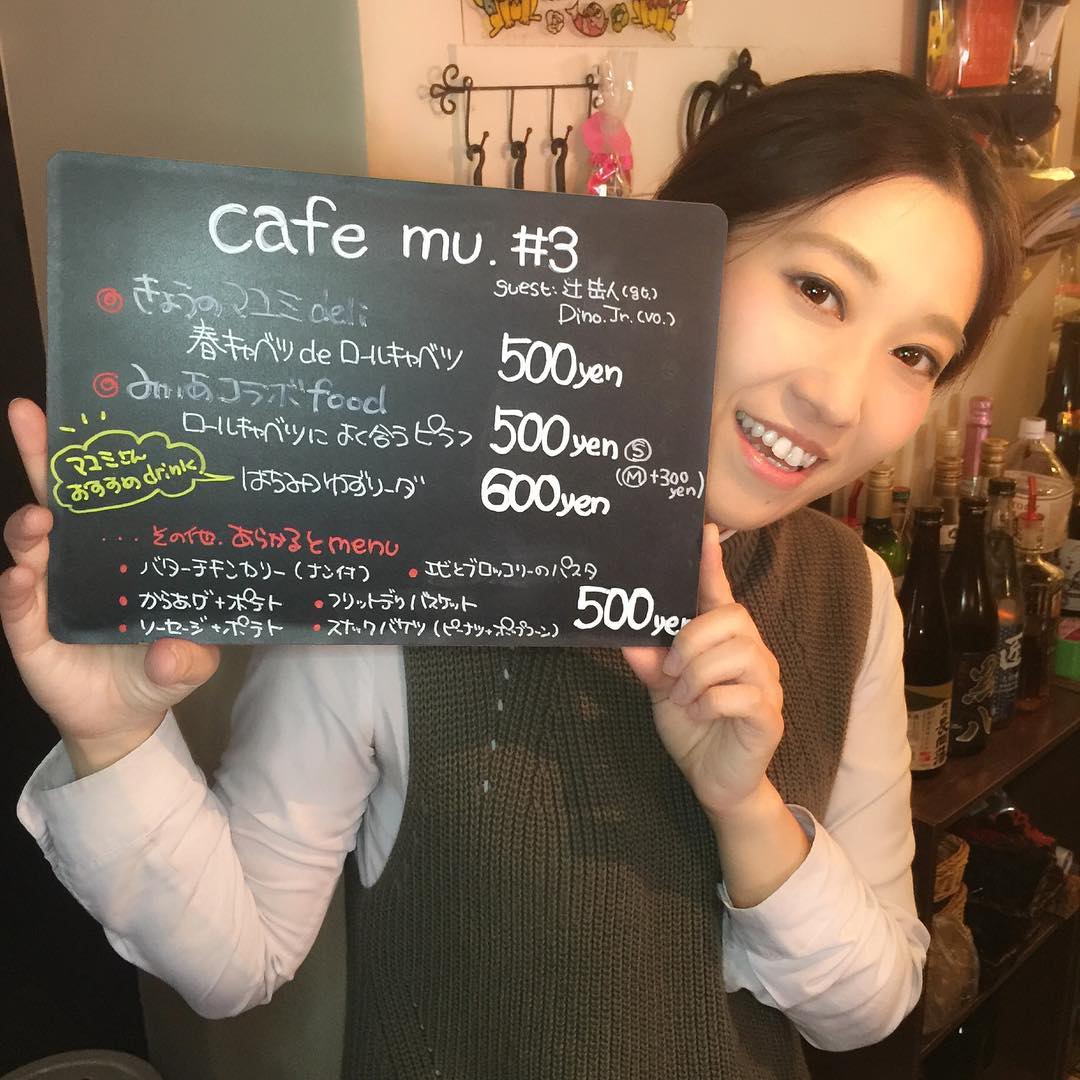 cafe mu. #3
guest: 辻 法人(gt.)
Dino.Jr.(vo.)
きょうのマユミdeli
春キャベツdeロールキャベツ 500yen
みぃあコラボfood
ロールキャベツによく合うピラフ 500yen Ⓢ
(Ⓜ+300yen)
マユミさん
おすすめdrink
はちみつゆずソーダ 600yen
....その他.あらかるとmenu
・バターチキンカリー(ナン付)
・エビとブロッコリーのパスタ
・からあげ+ポテト
・フリットデリバスケット
・ソーセージ+ポテト
・スナックバケツ(ピーナツ+ポップコーン)
500yen